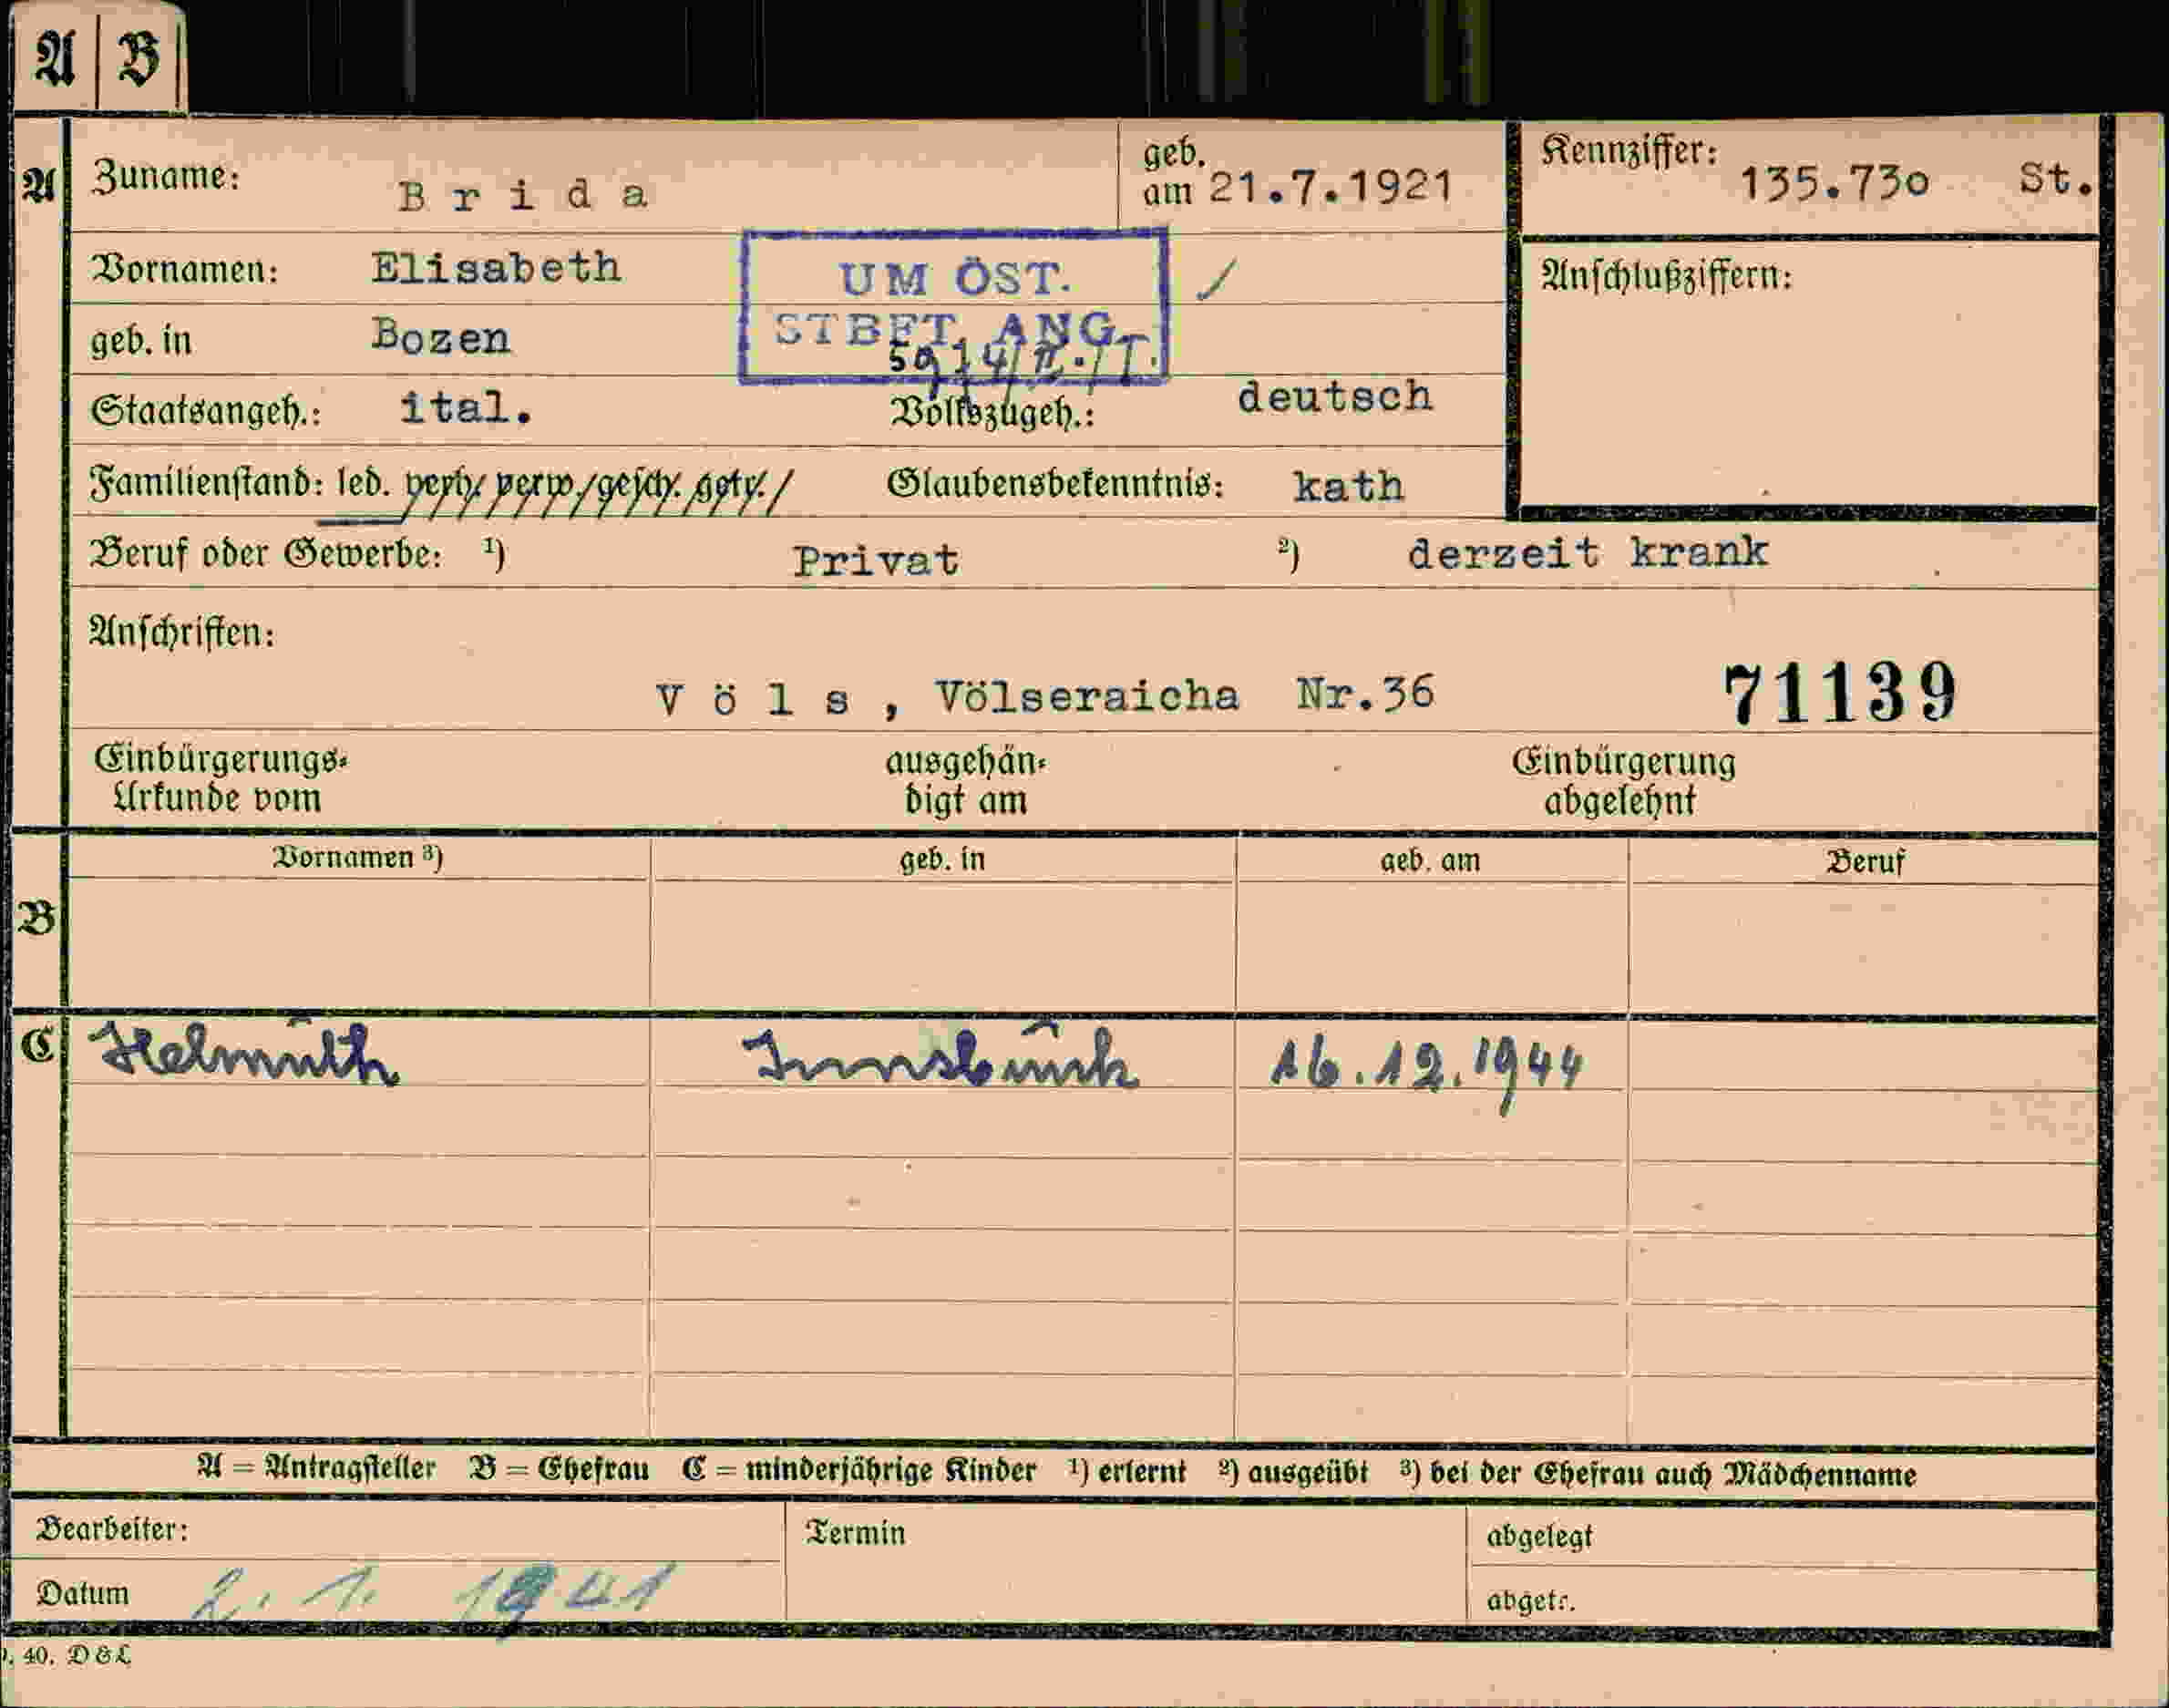 A B
A Zuname: Brida geb. am 21.7.1921 Kennziffer: 135.730 St.
Vornamen: Elisabeth UM ÖST. Anschlußziffern:
geb. in Bozen STBET. ANG.
Staatsangeh.: ital. Volkszugeh.: deutsch
Familienstand: led. verh. verw. gesch. getr. Glaubensbekenntnis: kath
Beruf oder Gewerbe: ¹) Privat ²) derzeit krank
Anschriften:
Völs, Völseraicha Nr.36 71139
Einbürgerungs- ausgehän- Einbürgerung
Urkunde vom digt am abgelehnt
Vornamen ³) geb. in geb. am Beruf
B
C Helmuth Innsbruck 16.12.1944
A = Antragsteller B = Ehefrau C = minderjährige Kinder ¹) erlernt ²) ausgeübt ³) bei der Ehefrau auch Mädchenname
Bearbeiter: Termin abgelegt
Datum 2. 1. 1941 abgetr.
40. D&L